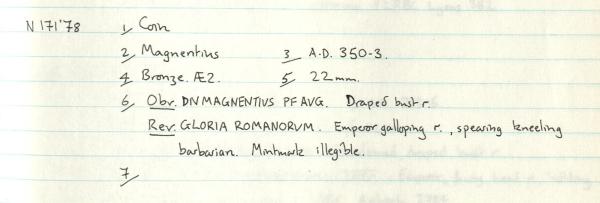 N 171'78 1, Coin
2, Magnentius 3, A.D. 350-3.
4, Bronze. Æ2. 5, 22mm.
6, Obv. DN MAGNENTIVS PF AVG. Draped bust r.
Rev: GLORIA ROMANORVM. Emperor galloping r., spearing kneeling
barbarian. Mintmark illegible.
7,